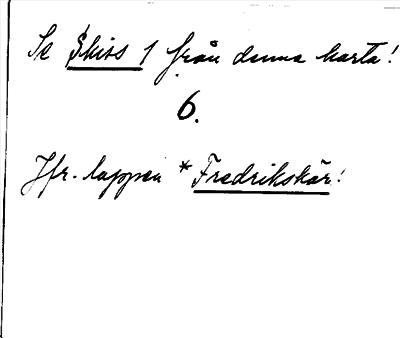 Se Skiss 1 från denna karta!
6.
Jfr. lappen *Fredrikskär!